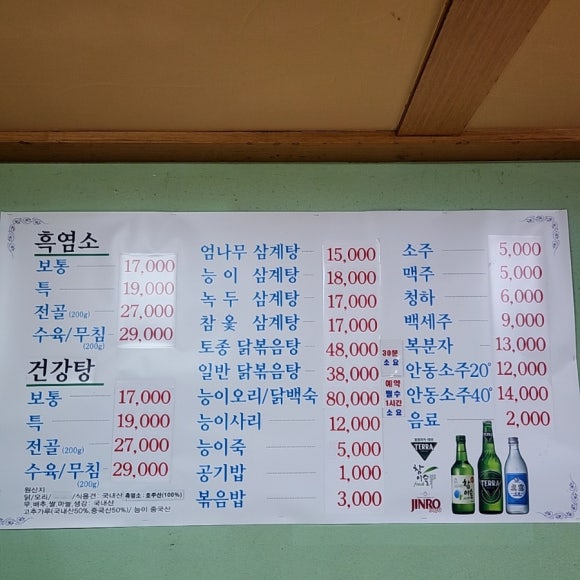 흑염소
보통 17,000
특 19,000
전골(200g) 27,000
수육/무침(200g) 29,000
건강탕
보통 17,000
특 19,000
전골(200g) 27,000
수육/무침(200g) 29,000
원산지
닭/오리/ /식용견 : 국내산 흑염소 : 호주산(100%)
무,배추,쌀,마늘,생강 : 국내산
고추가루(국내산50%,중국산50%)/ 능이 중국산
엄나무 삼계탕 15,000
능이 삼계탕 18,000
녹두 삼계탕 17,000
참옻 삼계탕 17,000
토종 닭볶음탕 48,000
일반 닭볶음탕 38,000
30분
소요
능이오리/닭백숙 80,000
예약
필수
1시간
소요
능이사리 12,000
능이죽 5,000
공기밥 1,000
볶음밥 3,000
소주 5,000
맥주 5,000
청하 6,000
백세주 9,000
복분자 13,000
안동소주20° 12,000
안동소주40° 14,000
음료 2,000
TERRA
참이슬
JINRO
TERRA